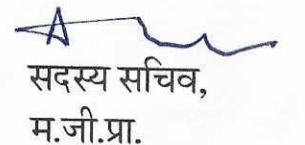 सदस्य सचिव,
म.जी.प्रा.